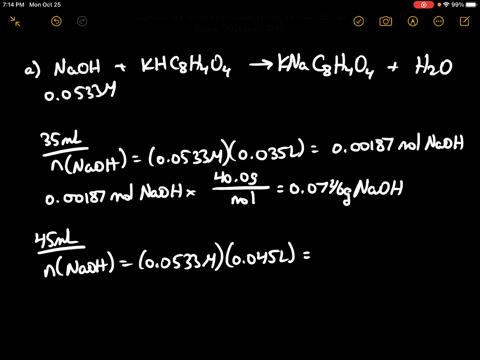 7:14 PM Mon Oct 25
99%
a) NaOH + KHC8H4O4 → KNaC8H4O4 + H2O
0.0533M
35mL
n(NaOH) = (0.0533M)(0.035L) = 0.00187 mol NaOH
0.00187 mol NaOH × 40.0g/mol = 0.0746g NaOH
45mL
n(NaOH) = (0.0533M)(0.045L) =